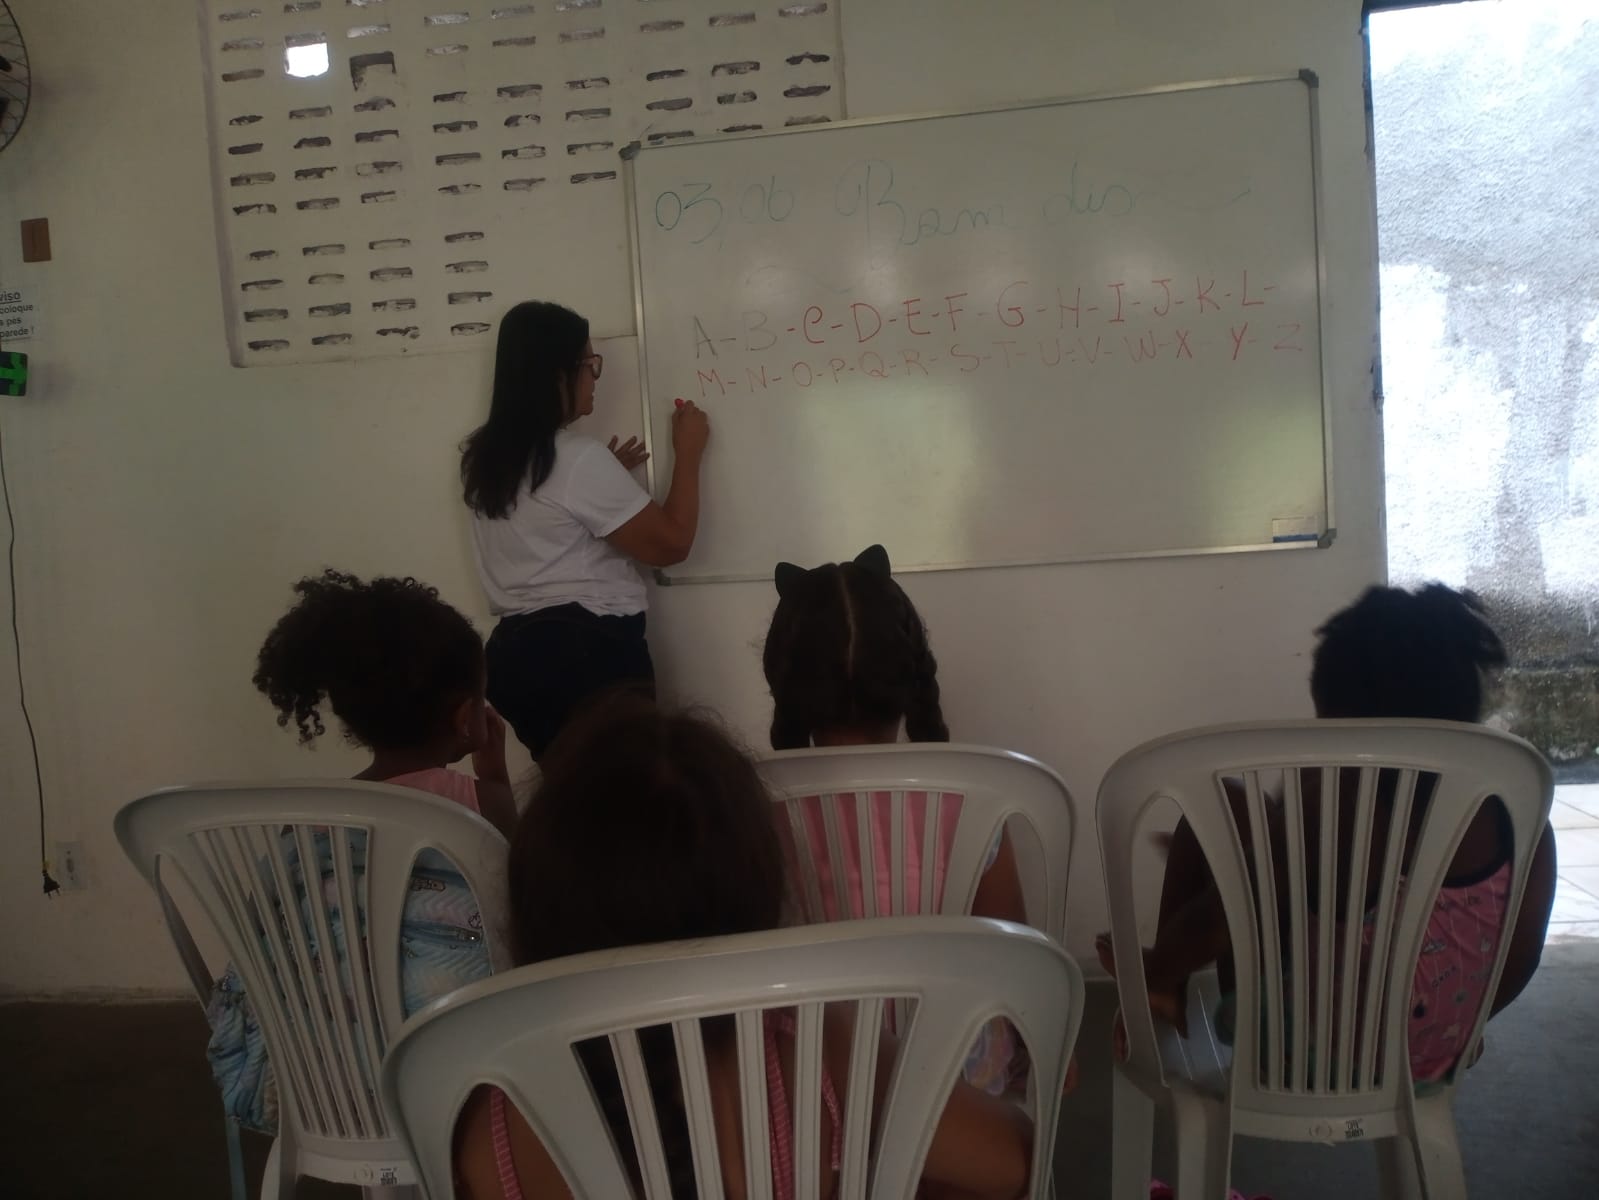 03,06 Bom dia
A-B-C-D-E-F-G-H-I-J-K-L-
M-N-O-P-Q-R-S-T-U-V-W-X-Y-Z
viso
coloque
s pés
parede !